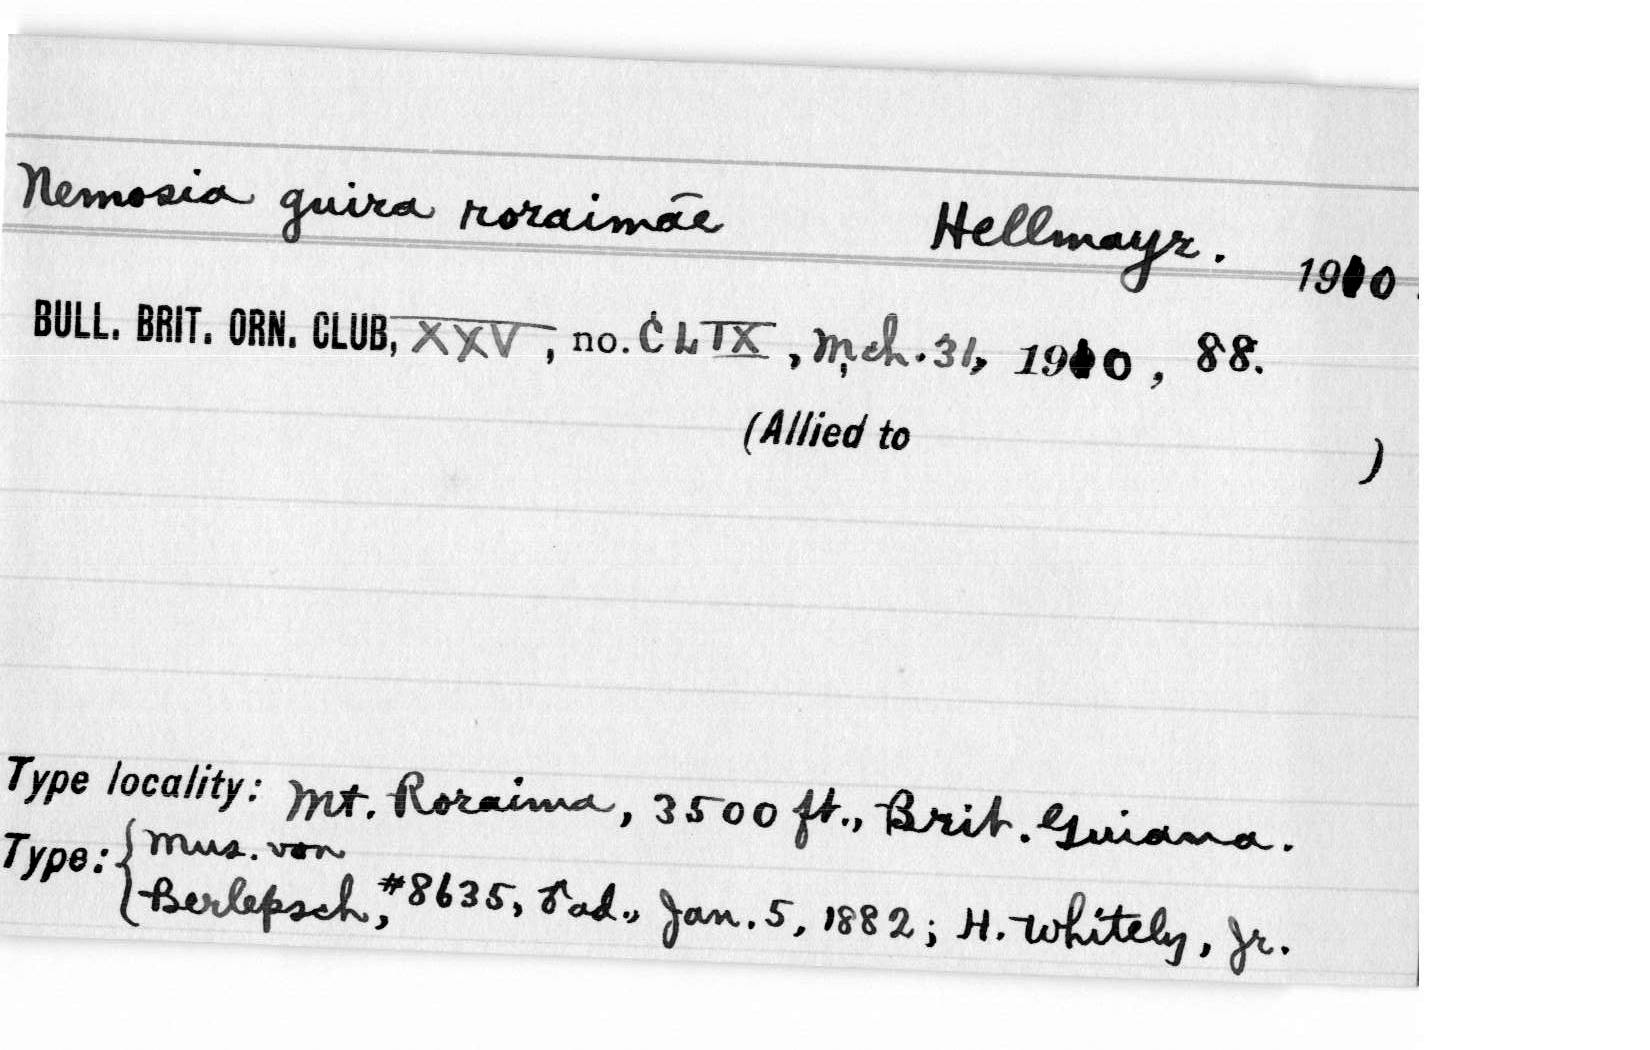 Nemosia guira roraimae Hellmayr. 1910.
BULL. BRIT. ORN. CLUB, XXV, no. CLIX, Mch. 31, 1910, 88.
(Allied to )
Type locality: Mt. Roraima, 3500 ft., Brit. Guiana.
Type: { Mus. von
Berlepsch, #8635, ♂ ad., Jan. 5, 1882; H. Whitely, Jr.